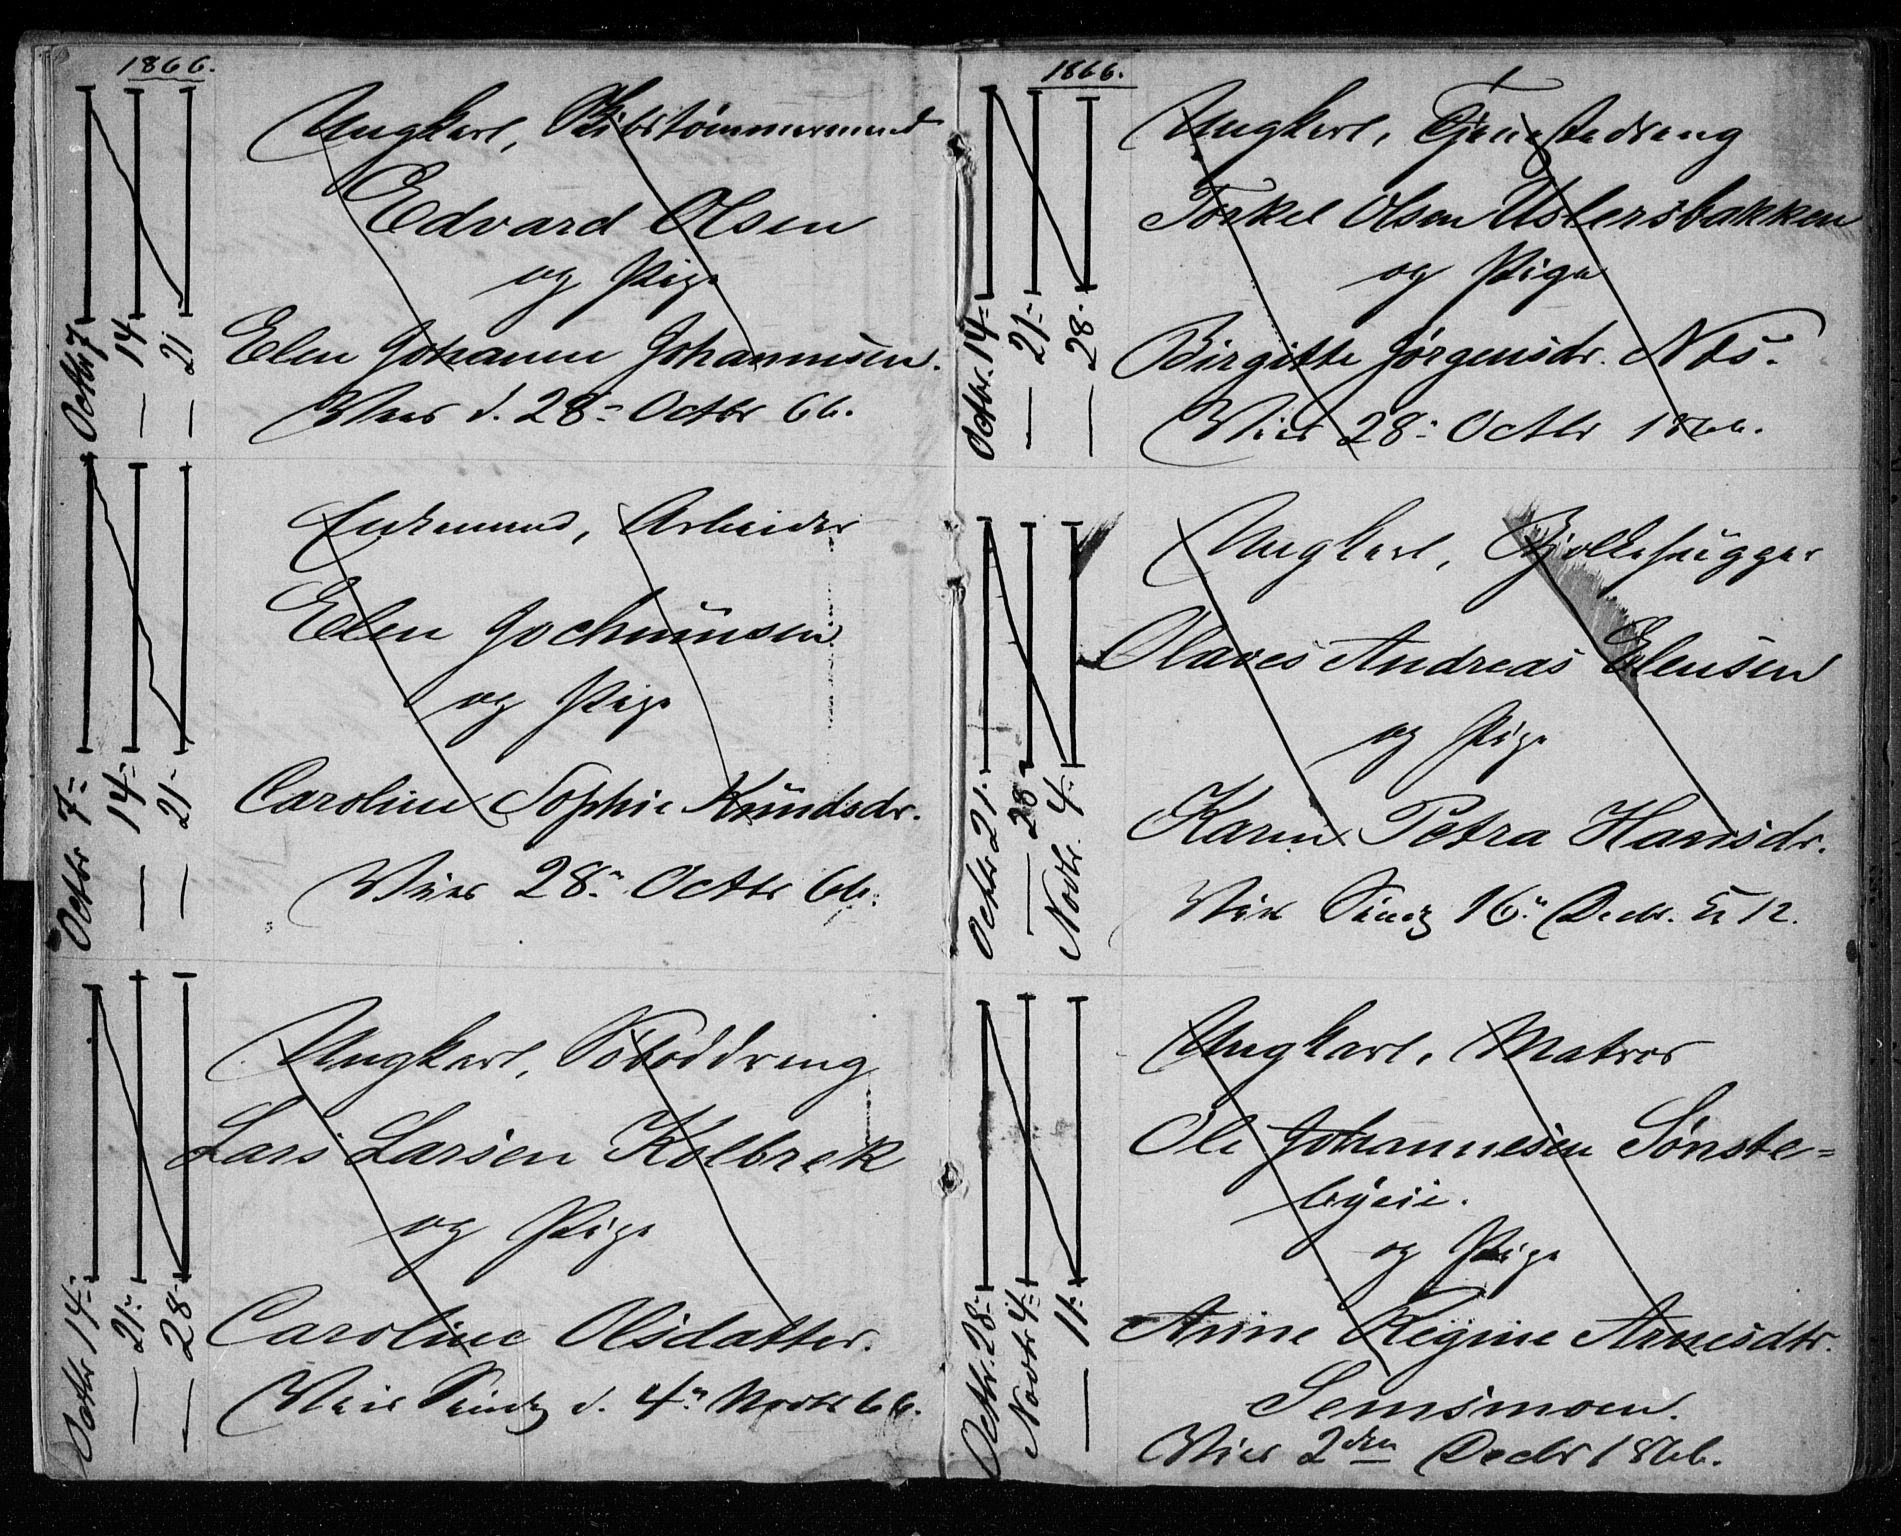 1866.
Octbr 7
— 14
— 21
Ungkarl, Skibstømmermand
Edvard Olsen
og Pige
Elen Johanne Johannesen.
Viet d. 28 Octbr 66.
Octbr 7
— 14
— 21
Enkemand, Arbeider
Elen Jochumsen
og Pige
Caroline Sophie Knudsdr.
Viet 28 Octbr 66.
Octbr 14
— 21
— 28
Ungkarl,
Lars Larsen Kolbrek
og Pige
Caroline Olsdatter.
Viet d. 4 Novbr 66.
1866.
Octbr. 14
— 21
— 28
Ungkarl, Tjenestedreng
Torkel Olsen Uslersbakken
og Pige
Birgitte Jørgensdr. Næs.
Viet 28 Octbr 1866.
Octbr 21
— 28
Novbr. 4
Ungkarl, Bjelkehugger
Olaves Andreas Elensen
og Pige
Karen Petra Hansdr.
Viet 16 Decbr. Kl 12.
Octbr. 28
Novbr 4
— 11
Ungkarl, Matros
Ole Johannesen Sønste=
byeie.
og Pige
Anne Regine Arnesdtr.
Semsmoen.
Viet 2den Decbr 1866.